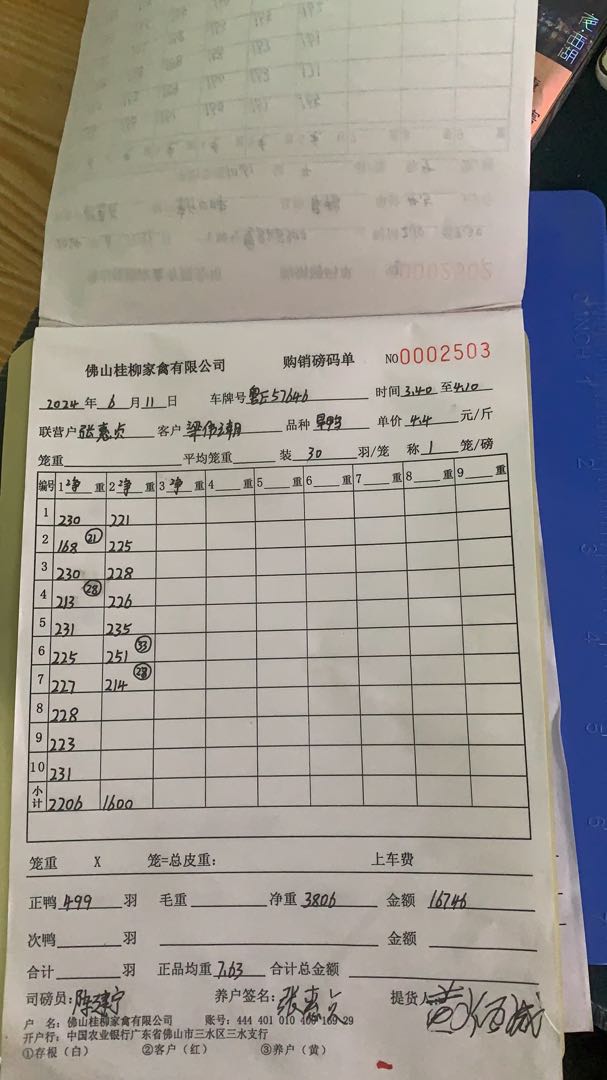 0002502
佛山桂柳家禽有限公司 购销磅码单 NO 0002503
2024 年 6 月 11 日 车牌号 粤E57646 时间 3.40 至 4.10
联营户 张惠贞 客户 品种 单价 4.4 元/斤
笼重 平均笼重 装 30 羽/笼 称 1 笼/磅
编号 1 净 重 2 净 重 3 净 重 4 重 5 重 6 重 7 重 8 重 9 重
1 230 221
2 168 21 225
3 230 228
4 213 28 226
5 231 235
6 225 251 33
7 227 214
8 228
9 223
10 231
小计 2206 1600
笼重 X 笼=总皮重: 上车费
正鸭 499 羽 毛重 净重 3806 金额 16746
次鸭 羽 金额
合计 羽 正品均重 7.63 合计总金额
司磅员: 养户签名: 张惠贞 提货人:
户 名: 佛山桂柳家禽有限公司 账号: 444 401 010 29
开户行: 中国农业银行广东省佛山市三水区三水支行
①存根（白） ②客户（红） ③养户（黄）